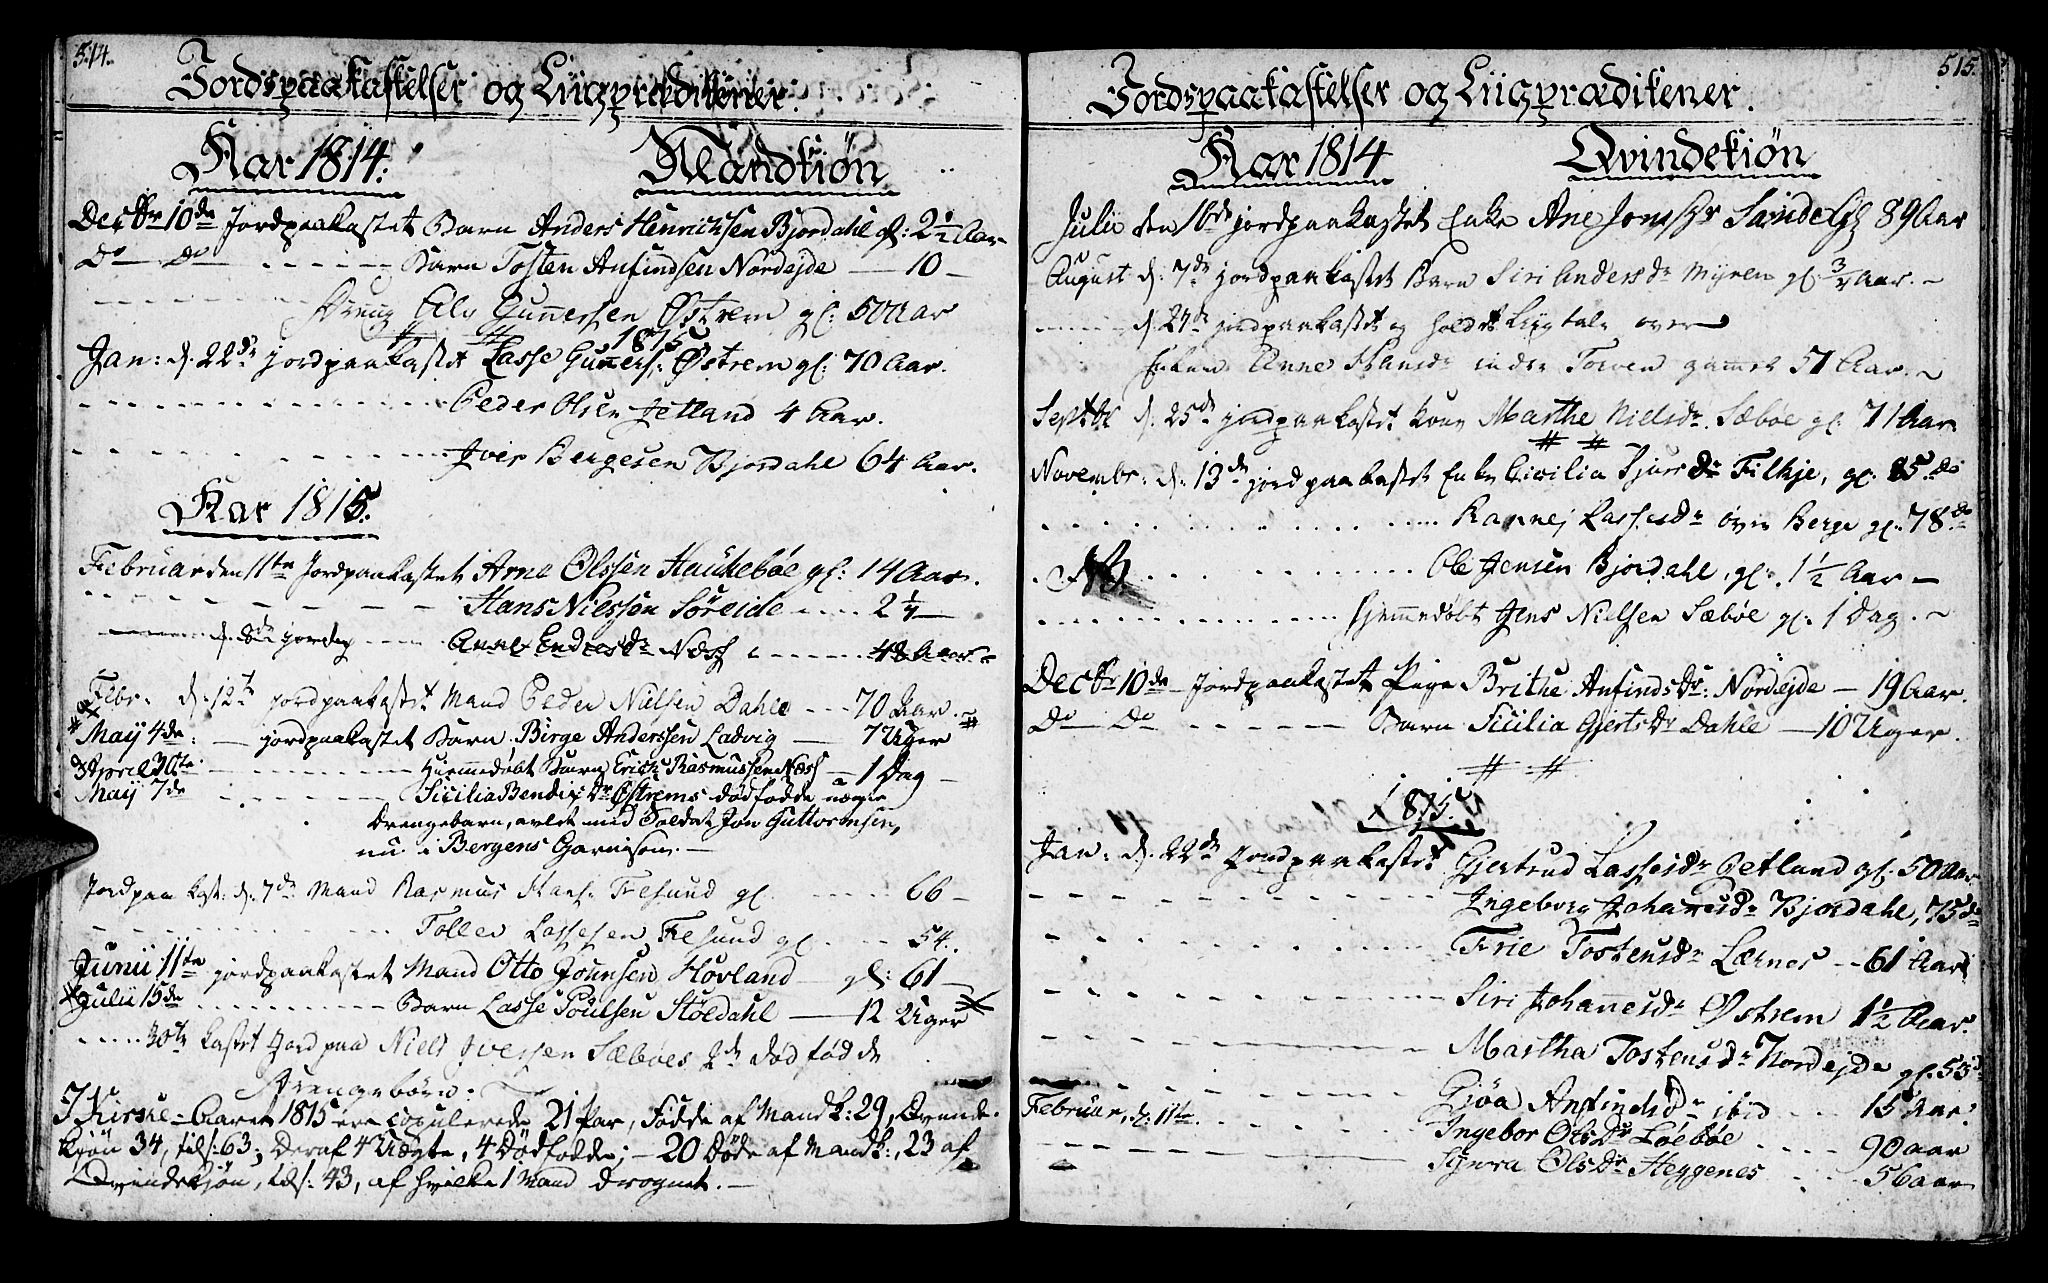 514.
Jordspaakastelser og Liigprædikener.
Aar 1814. Mandkiøn
Decbr 10de Jordpaakastet Barn Anders Henrichsen Bjordahl gl: 2½ Aar
Do Do Barn Tosten Anfindsen Nordejde 10
Dreng Elv Gunnersen Østrem gl: 50 Aar
1815
Jan: d. 22de jordpaakastet Lasse Guners: Østrem gl: 70 Aar.
Peder Olsen Jetland 4 Aar.
Iver Bergesen Bjordahl 64 Aar.
Aar 1815.
Februar den 11te Jordpaakastet Arne Olssen Haukebøe gl: 14 Aar.
Hans Nielssen Søreide 2¼
Anne Endresdr Næss 48 Aar.
Febr. d. 12te jordpaakastet Mand Peder Nielsen Dahle 70 Aar.
May 4de jordpaakastet Barn Birge Anderssen Ladvig 7 Uger
April 30te Hiemmedøbt Barn Erich Rasmussen Næss 1 Dag
May 7de Sicilia Bendixdr Østrems dødfødde uægte
Drengebarn, avlet med Soldat Jon Guttormsen,
nu i Bergens Garnison.
Jordpaakast. d. 7de Mand Rasmus Hans: Fresund gl. 66
Toller Lassesen Fresund gl. 54.
Junii 11te jordpaakastet Mand Otto Johnsen Hovland gl: 61
Julii 15de Barn Lasse Poulsen Støldahl 12 Uger
30te kastet Jord paa Niels Iverssen Sæbøes 2de dødfødde
Drengebørn.
I Kirske-Aaren 1815 ere copulerede 21 Par, Fødde af Mandk: 29, Qvinde-
kjøn 34, tils: 63; Deraf 4 Uægte, 4 Dødfødde; 20 Døde af Mandk:, 23 af
Qvindekjøn, tils: 43, af hvilke 1 Mand drognet.
515.
Jordspaakastelser og Liigprædikener.
Aar 1814 Qvindekiøn
Julii den 16de jordpaakastet Enke Ane Jonsdr Sandelf 89 Aar
August d: 7de jordpaakastet Barn Siri Andersdr Myren gl. ¾ Aar.
d. 27de jordpaakastet og holdt Liigtale over
Enken Anne Hansdr gammel 51 Aar.
Septbr d. 25de jordpaakastet Kone Marthe Nielsdr Sæbøe gl. 71 Aar
Novembr. d. 13de jordpaakastet Enke Cicilia Sjursdr Filhje, gl. 85 do
Rannej Lassesdr øvre Berge gl. 78 do
NB Ole Jensen Bjordahl, gl. 1½ Aar
hjemmedøbt Jens Nielsen Sæbøe gl. 1 Dag.
Decbr 10de Jordpaakastet Pige Brithe Anfindsdr: Nordejde 19 Aar.
Do Do Barn Sicilia Gjertsdr Dahle 10 Uger.
1815.
Jan: d. 22de Jordpaakastet Gjertrud Lassesdr Jetland gl. 50 Aar
Ingeborg Johannesdr Bjordahl, 75 do
Frie Tostensdr Lærnes 61 Aar
Siri Johannesdr Østrem 1½ Aar.
Martha Tostensdr Nordejde gl. 53
Gjøa Anfindsdr ibid 15 Aar
Februar, d. 11te Ingebor Olsdr Løebøe 90 aar
Synva Olsdr Heggenes 56 aar